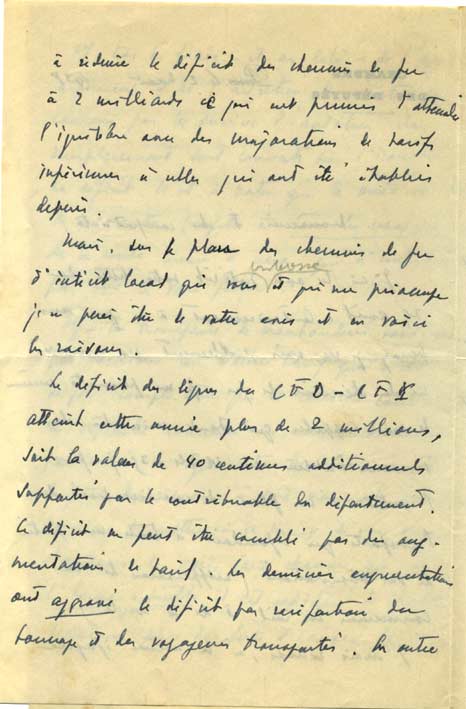 à réduire le déficit des chemins de fer
à 2 milliards ce qui eut permis d'atteindre
l'équilibre avec des majorations de tarifs
inférieures à celles qui ont été établies
depuis.
Mais, sur le plan des chemins de fer
d'intérêt local qui vous intéresse et qui me préoccupe
je ne puis être de votre avis et en voici
les raisons.
Le déficit des lignes du CFD - CF
atteint cette année plus de 2 millions,
soit la valeur de 40 centimes additionnels
supportés par le contribuable du département.
Ce déficit ne peut être comblé par des aug-
mentations de tarif. Les dernières augmentations
ont aggravé le déficit par raréfaction du
tonnage et des voyageurs transportés. En outre